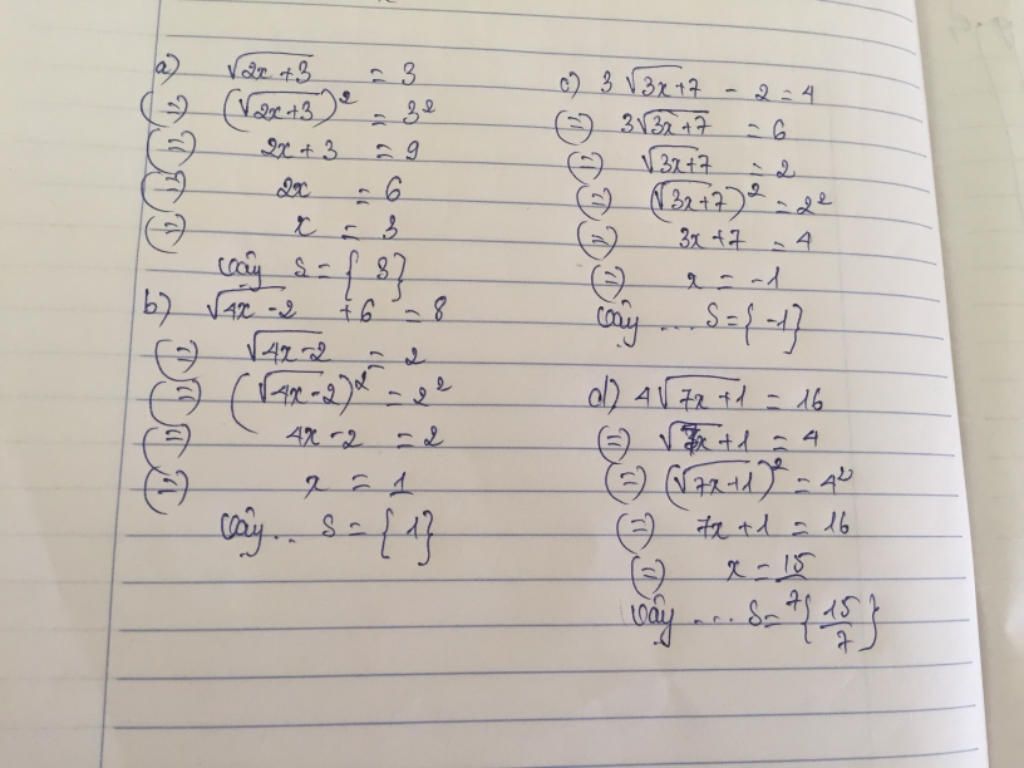 a) √(2x+3) = 3
⇔ (√(2x+3))² = 3²
⇔ 2x+3 = 9
⇔ 2x = 6
⇔ x = 3
Vậy S = {3}
b) √(4x-2) + 6 = 8
⇔ √(4x-2) = 2
⇔ (√(4x-2))² = 2²
⇔ 4x-2 = 2
⇔ x = 1
Vậy.. S = {1}
c) 3√(3x+7) - 2 = 4
⇔ 3√(3x+7) = 6
⇔ √(3x+7) = 2
⇔ (√(3x+7))² = 2²
⇔ 3x+7 = 4
⇔ x = -1
Vậy ... S = {-1}
d) 4√(7x+1) = 16
⇔ √(7x+1) = 4
⇔ (√(7x+1))² = 4²
⇔ 7x+1 = 16
⇔ x = 15/7
Vậy ... S = {15/7}